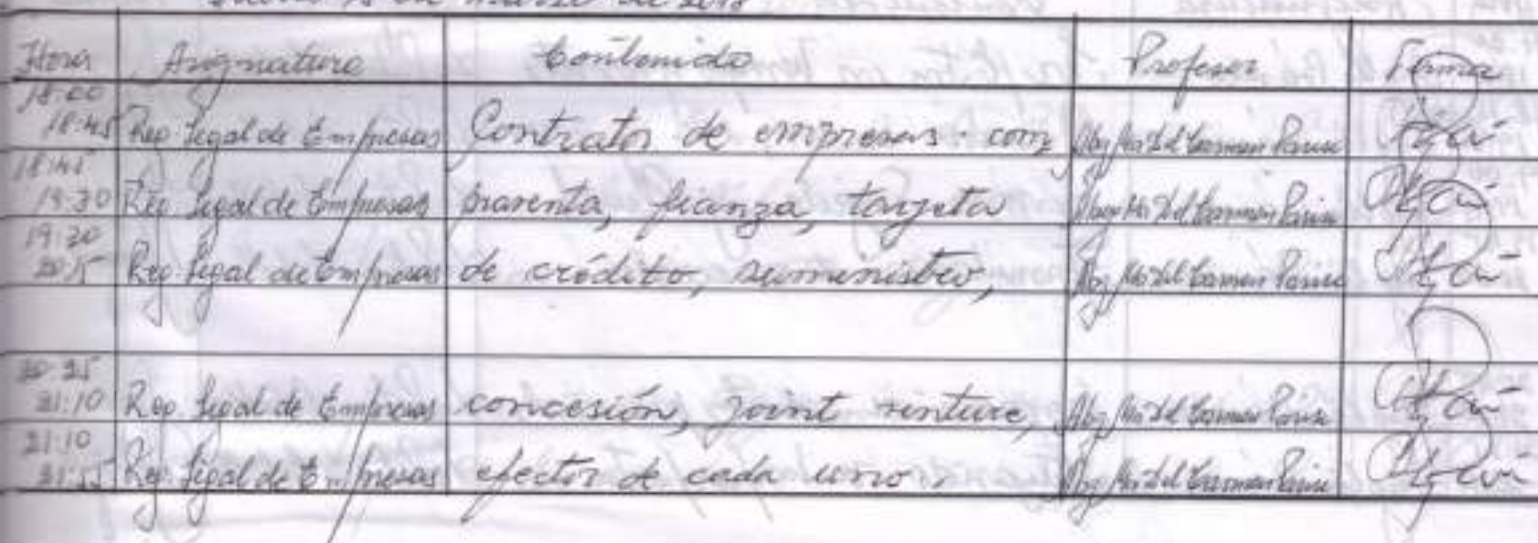 de marzo de 2018
Hora Asignatura Contenido Profesor Firma
18:00
18:45 Reg. Legal de Empresas Contratos de empresas: com Abg. Ma. Del Carmen
18:45
19:30 Reg. Legal de Empresas praventa, fianza, tarjeta Abg. Ma. Del Carmen
19:30
20:15 Reg. Legal de Empresas de crédito, suministro, Abg. Ma. Del Carmen
20:25
21:10 Reg. Legal de Empresas concesión, joint venture, Abg. Ma. Del Carmen
21:10
21:55 Reg. Legal de Empresas efectos de cada uno. Abg. Ma. Del Carmen